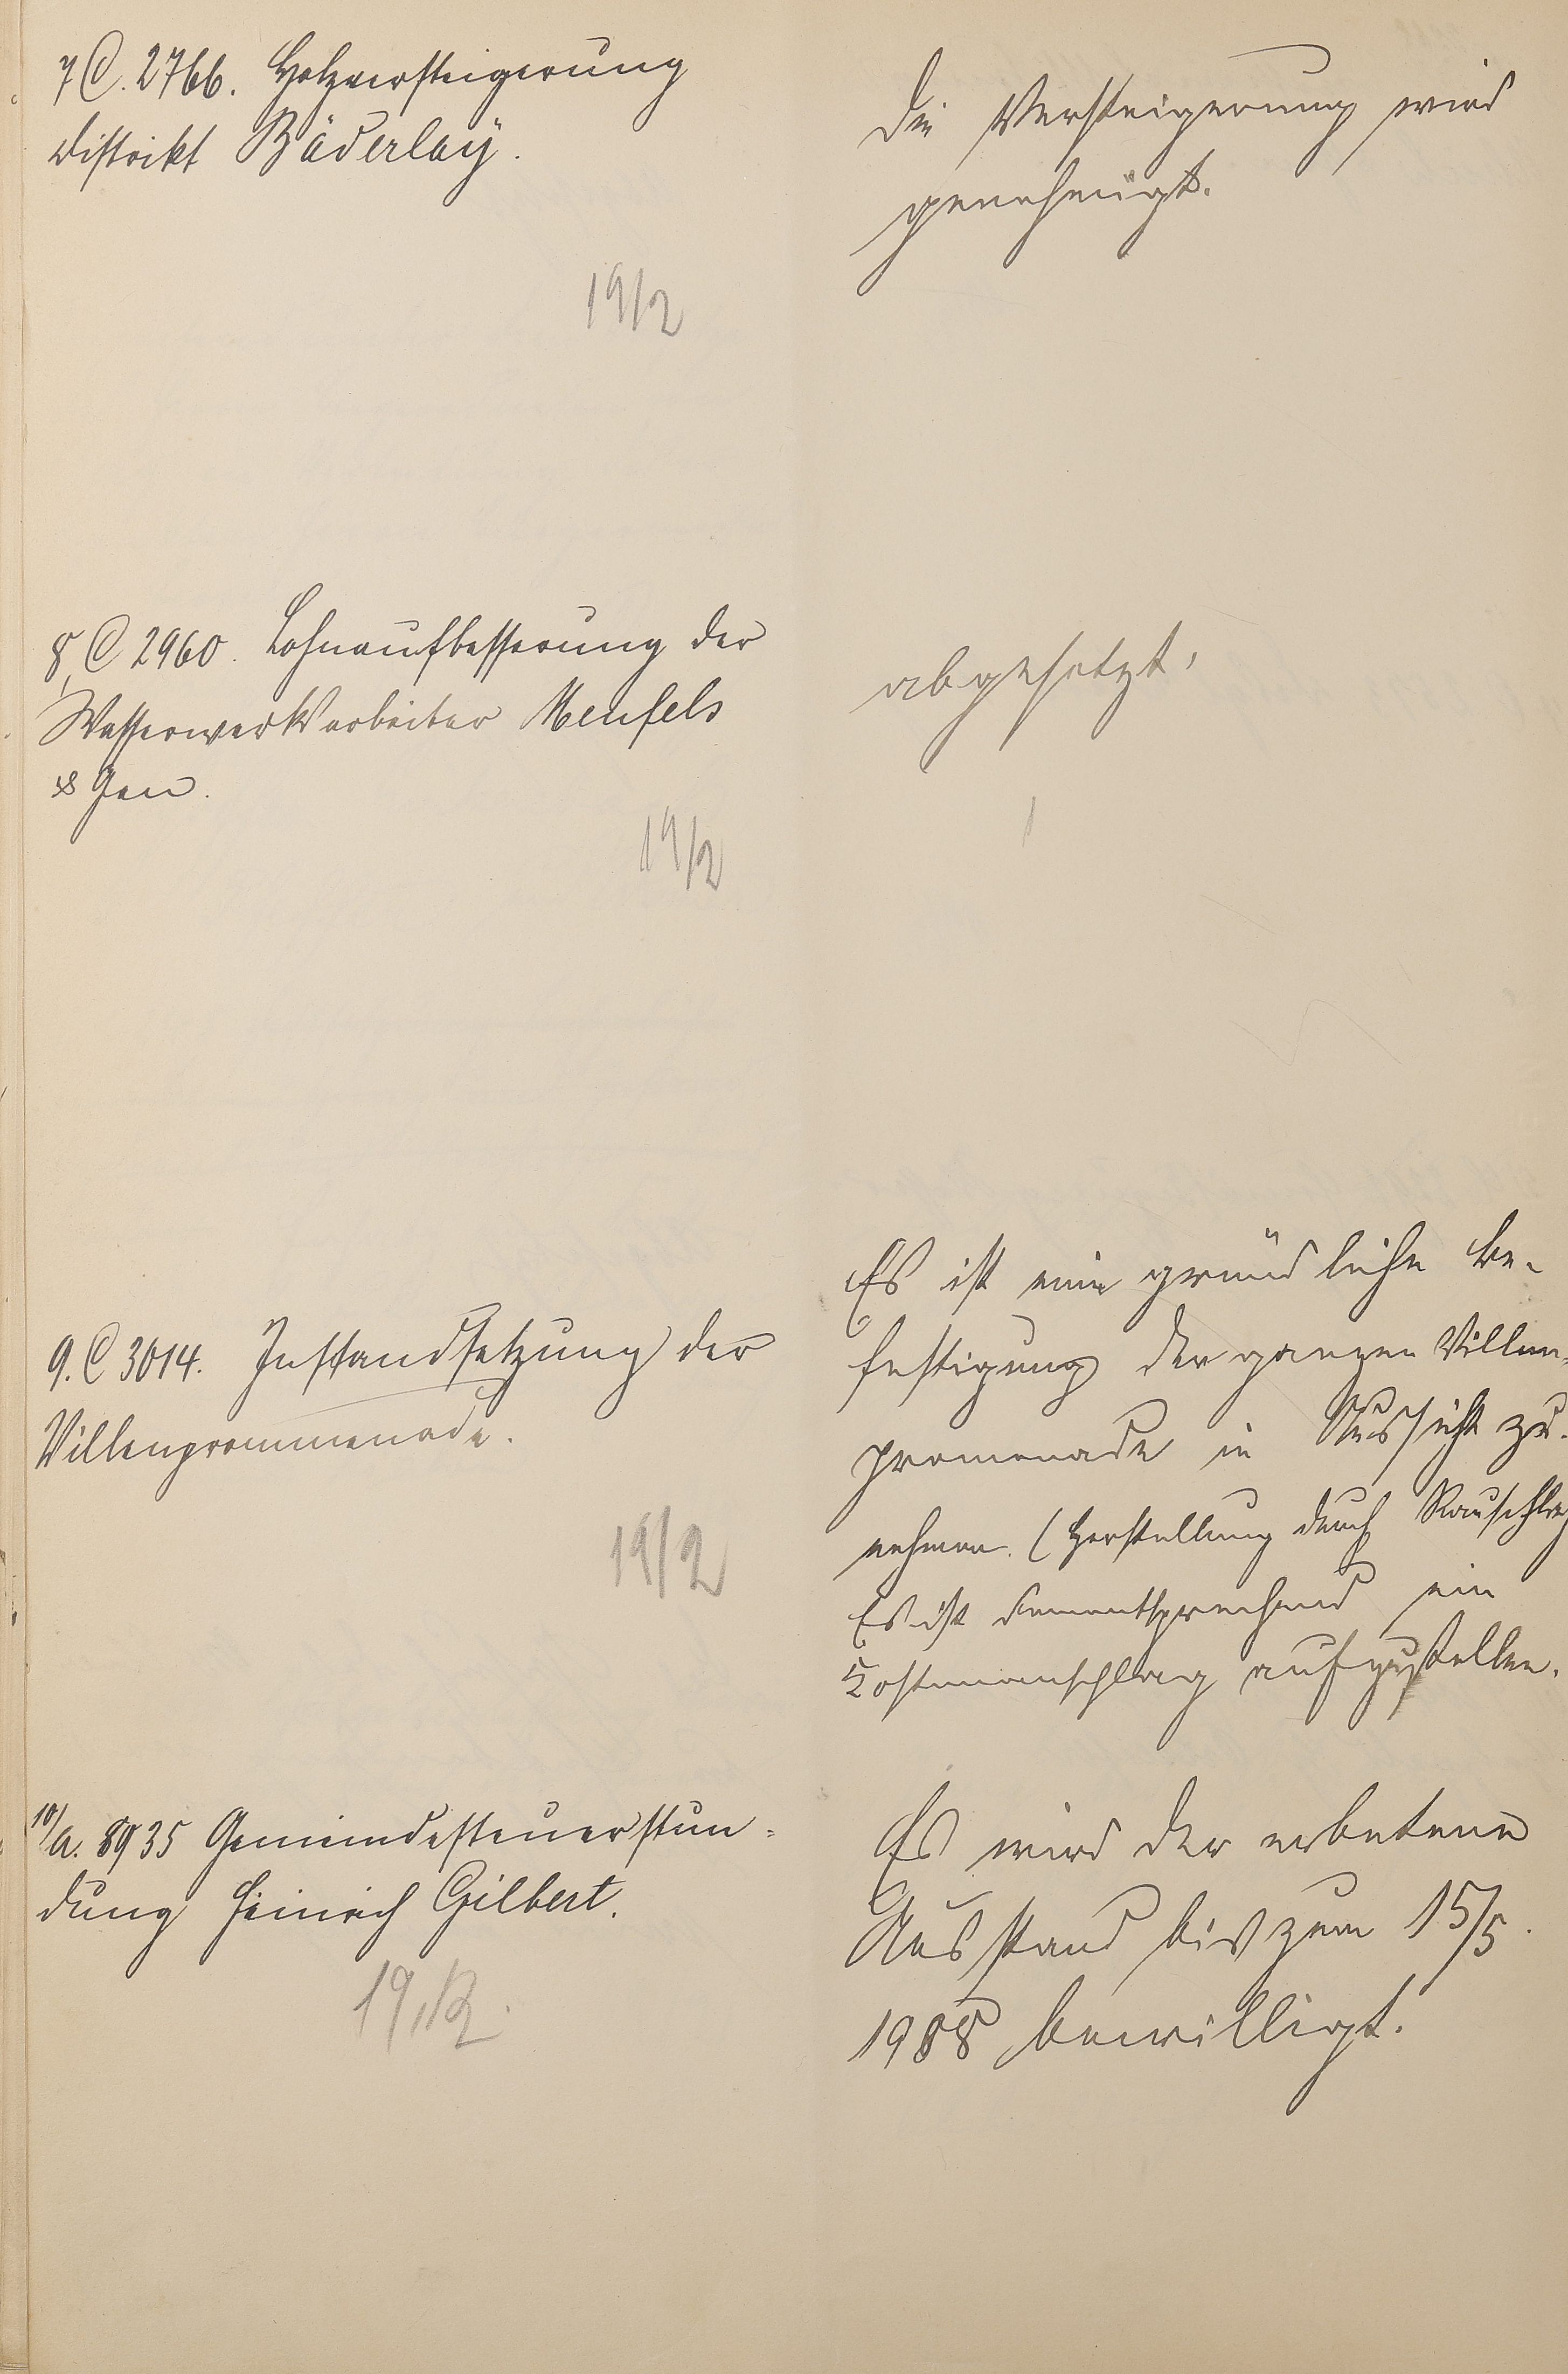 7 C. 2766. Holzversteigerung
Distrikt Bäderlay.
19/2
Die Versteigerung wird
genehmigt.
8, C 2960. Lohnaufbesserung der
Wasserwerksarbeiter Menfels
& Gen.
19/2
abgesetzt.
9. C 3014. Instandsetzung der
Villenprommenade.
19/2
Es ist eine gründliche Be-
festigung der ganzen Villen-
promenade in Aussicht zu
nehmen. (Herstellung durch Rauschlag
Es ist dementsprechend ein
Kostenanschlag aufzustellen.
10/ A. 8935 Gemeindesteuerstun-
dung Heinrich Gilbert.
19/2.
Es wird der erbetene
Ausstand bis zum 15/5.
1908 bewilligt.